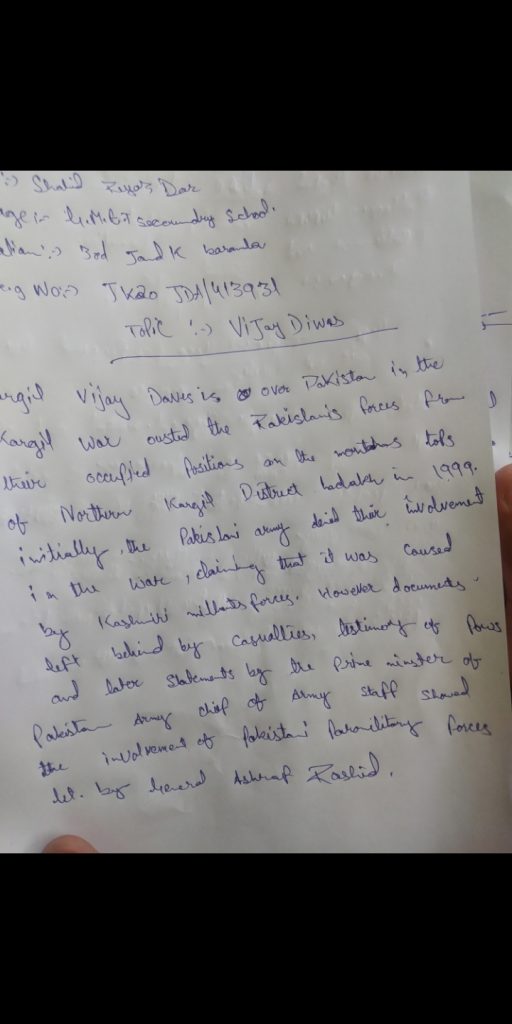 :-) Shahid Dar
ge in G.M.B.T secoundry School.
:-) 3rd J and K
e.g No:-) JK20 JDA/413931
Topic :-) Vijay Diwas
rgil Vijay is over Pakistan in the
Kargil War ousted the Pakislanis forces from
their occufied Positions on the tops
of Northern Kargil District ladakh in 1999.
initially, the Pakislani army their involvement
in the War, claiming that it was caused
by Kashmiri forces. However documents
left behind by casualties, testimony of Pows
and later statements by the Prime minster of
Pakistan Army chief of Army staff showed
the involvement of Pakistani Paramilitary forces
by General Ashraf Rashid.